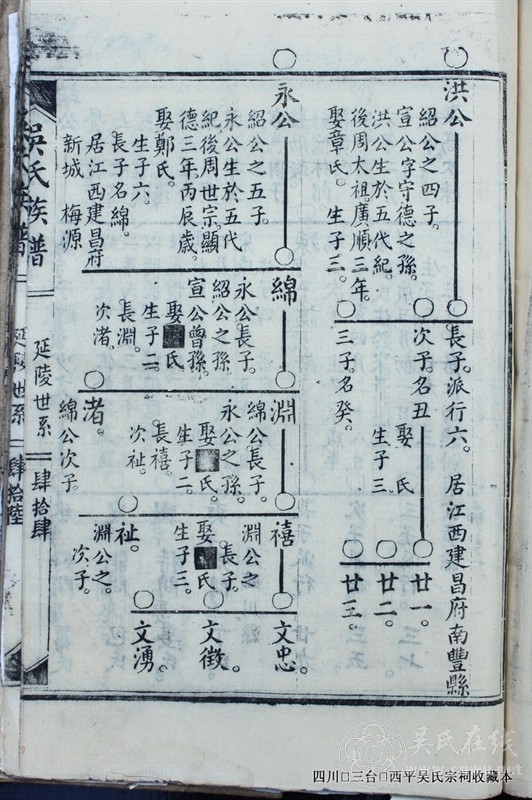 洪公
紹公之四子。
宣公字守德之孫。
洪公生於五代紀。
後周太祖。廣順三年。
娶章氏。生子三。
長子。派行六。居江西建昌府南豐縣
次子。名丑
娶 氏
生子三。
三子。名癸。
廿一。
廿二。
廿三。
永公
紹公之五子。
永公生於五代
紀後周世宗。顯
德三年丙辰歲。
娶鄭氏。
生子六。
長子名綿。
居江西建昌府
新城 梅源
綿
永公長子。
紹公之孫。
宣公曾孫。
娶 氏
生子二。
長淵。
次渚。
淵
綿公長子。
永公之孫。
娶 氏。
生子二。
長禧。
次祉。
渚。
綿公次子。
禧
淵公之
長子。
娶 氏
生子三。
祉。
淵公之
次子。
文忠。
文徵。
文湧。
吳氏族譜
延陵世系
肆拾肆
延陵世系
肆拾陸
吴氏在线
四川□三台□西平吴氏宗祠收藏本